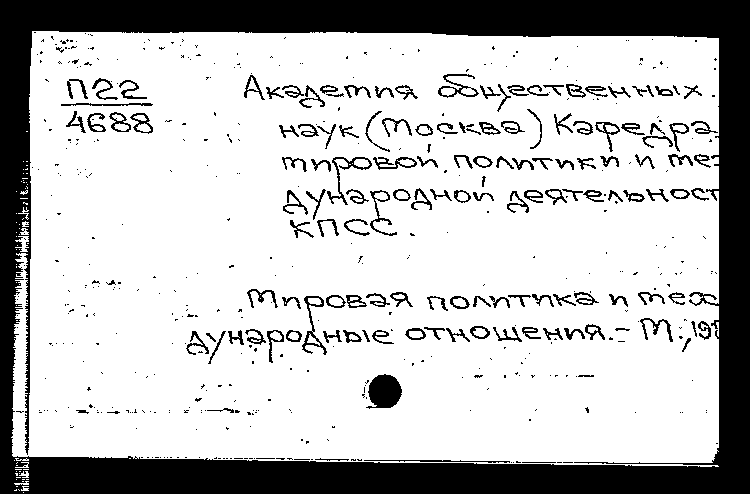 П22
4688
Академия общественных
наук (Москва) Кафедра
мировой политики и меж
дународной деятельност
КПСС.
Мировая политика и меж
дународные отношения. - М.,